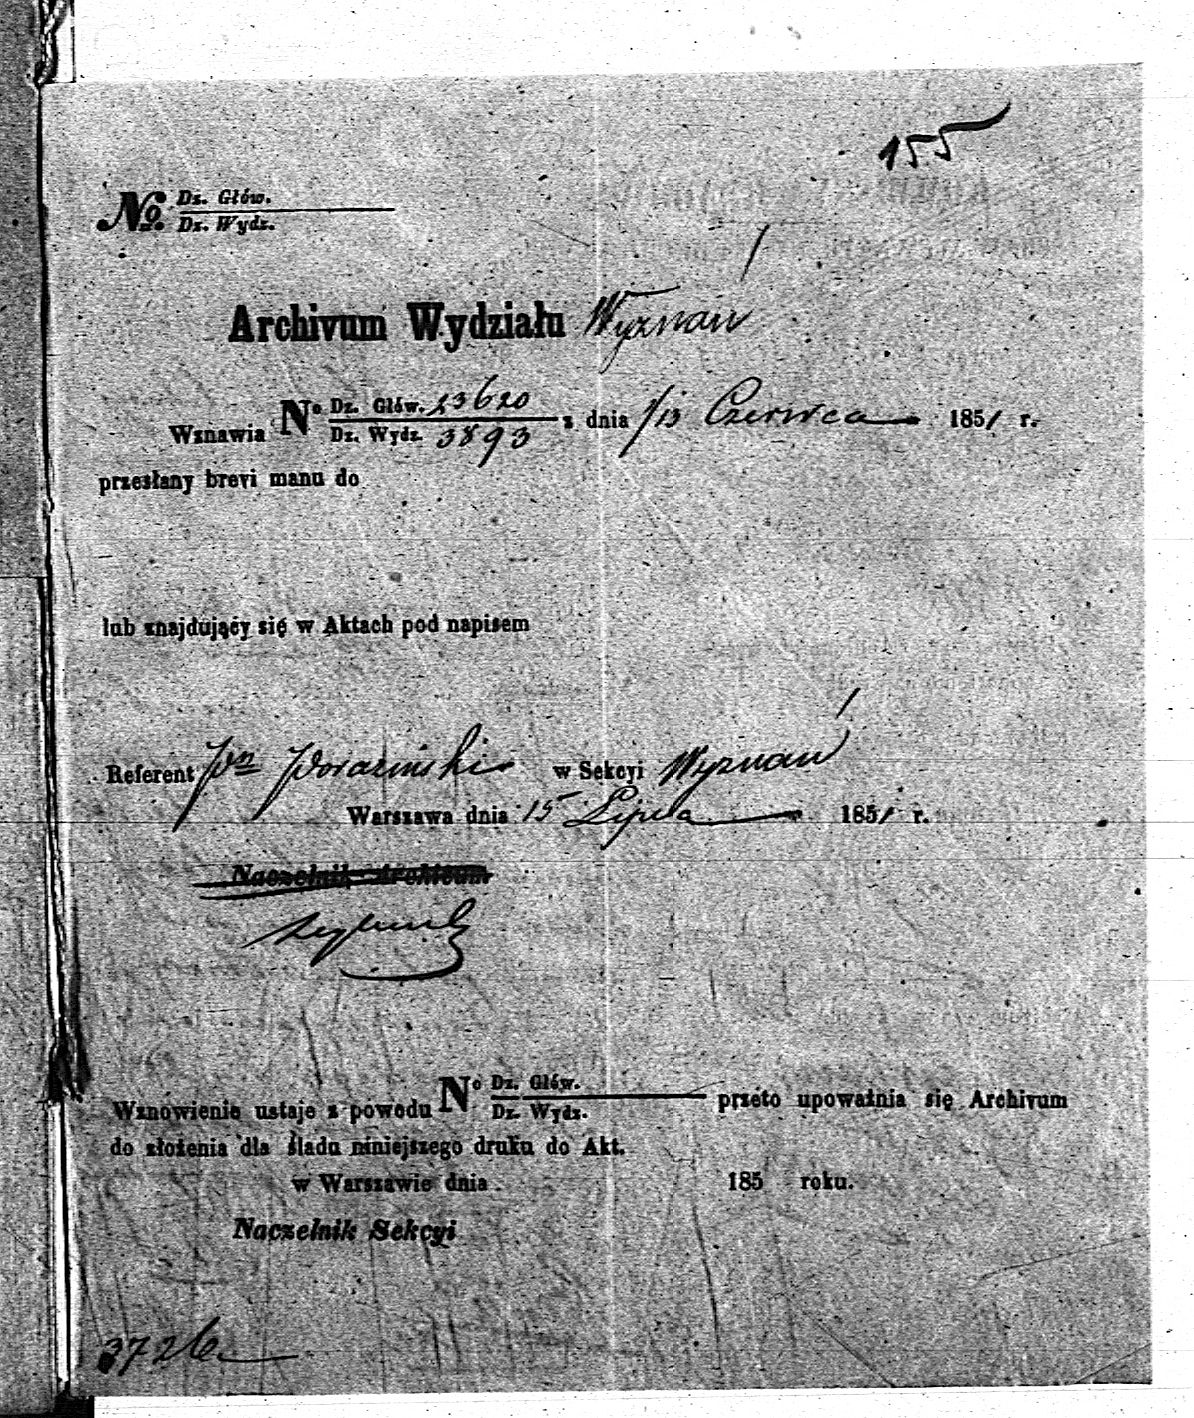 155
No. Dz. Głów.
Dz. Wydz.
Archivum Wydziału Wyznań
Wznawia No Dz. Głów. 13620 z dnia 1/13 Czerwca 1851 r.
Dz. Wydz. 3893
przesłany brevi manu do
lub znajdujący się w Aktach pod napisem
Referent w Sekcyi Wyznań
Warszawa dnia 15 Lipca 1851 r.
Naczelnik Archivum
Wznowienie ustaje z powodu No Dz. Głów. przeto upoważnia się Archivum
Dz. Wydz.
do złożenia dla śladu niniejszego druku do Akt.
w Warszawie dnia 185 roku.
Naczelnik Sekcyi
3726